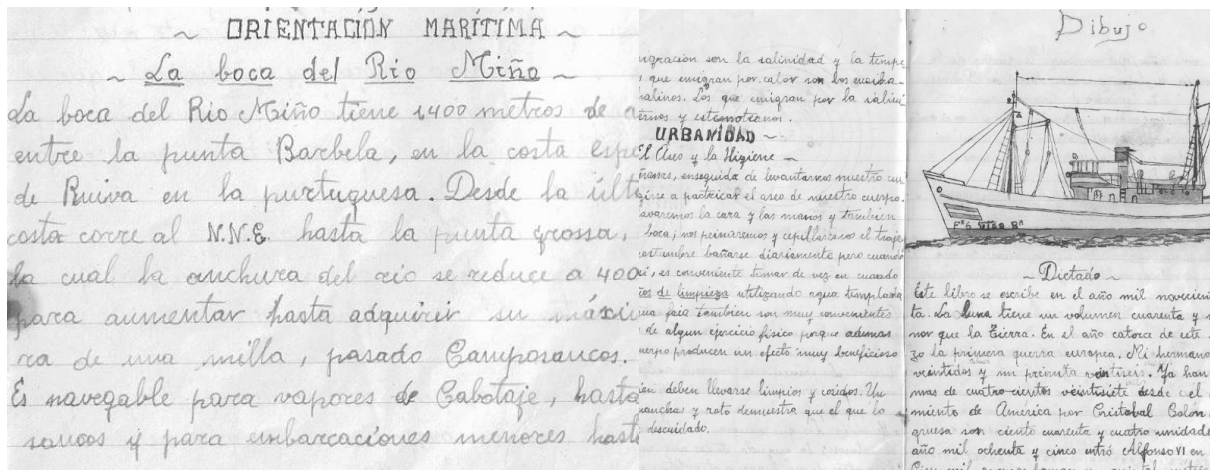 ~ ORIENTACIÓN MARÍTIMA ~
~ La boca del Rio Miño ~
La boca del Rio Miño tiene 1400 metros de a
entre la punta Barbela, en la costa espe
de Ruiva en la purtuguesa. Desde la últ
costa corre al N.N.E. hasta la punta grossa,
la cual la anchura del rio se reduce a 400
para aumentar hasta adquirir su máxi
ra de una milla, pasado Camposancos.
Es navegable para vapores de Cabotaje, hasta
sancos y para embarcaciones menores hast
migración son la salinidad y la tempe
que emigran por calor son los
salinos. Los que emigran por la salini
URBANIDAD ~
El Aseo y la Higiene ~
enseguida de levantarnos nuestro
a practicar el aseo de nuestro cuerpo.
lavaremos la cara y las manos y tambien
boca, nos peinaremos y cepillaremos el traje
costumbre bañarse diariamente pero cuando
es conveniente tomar de vez en cuando
de limpieza utilizando agua templada
fria tambien son muy convenientes
de algun ejercicio físico porque ademas
cuerpo producen un efecto muy beneficioso
deben llevarse limpios y cosidos. Un
manchas y roto demuestra que el que lo
descuidado.
Dibujo
VIGO
~ Dictado ~
Este libro se escribe en el año mil novecien
ta. La Luna tiene un volumen cuarenta y
nor que la Tierra. En el año catorce de este
zo la primera guerra europea. Mi hermano
veintidos y mi prima veintiseis. Ya han
mas de cuatro-cientos veintisiete desde el
miento de América por Cristobal Colón.
gruesa son ciento cuarenta y cuatro unidade
año mil ochenta y cinco entró Alfonso VI en